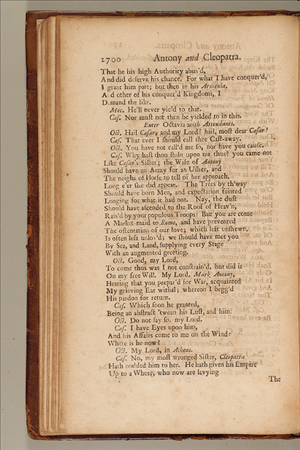 2700 Antony and Cleopatra.
That he his high Authority abus'd,
And did deserve his change. For what I have conquer'd,
I grant him part; but then in his Armenia,
And other of his conquer'd Kingdoms, I
Demand the like.
Mec. He'll never yield to that.
Cæs. Nor must not then be yielded to in this.
Enter Octavia with Attendants.
Oct. Hail Cæsar, and my Lord! hail, most dear Cæsar!
Cæs. That ever I should call thee Cast-away.
Oct. You have not call'd me so, nor have you cause.
Cæs. Why hast thou stoln upon me thus? you came not
Like Cæsar's Sister; the Wife of Antony
Should have an Army for an Usher, and
The neighs of Horse to tell of her approach,
Long e'er she did appear. The Trees by th'way
Should have born Men, and expectation fainted
Longing for what it had not. Nay, the dust
Should have ascended to the Roof of Heav'n,
Rais'd by your populous Troops: But you are come
A Market-maid to Rome, and have prevented
The ostentation of our love; which left unshewn,
Is often left unlov'd; we should have met you
By Sea, and Land, supplying every Stage
With an augmented greeting.
Oct. Good, my Lord,
To come thus was I not constrain'd, but did it
On my free Will. My Lord, Mark Antony,
Hearing that you prepar'd for War, acquainted
My grieving Ear withal; whereon I begg'd
His pardon for return.
Cæs. Which soon he granted,
Being an abstract 'tween his Lust, and him.
Oct. Do not say so, my Lord.
Cæs. I have Eyes upon him,
And his Affairs come to me on the Wind:
Where is he now?
Oct. My Lord, in Athens.
Cæs. No, my most wronged Sister, Cleopatra
Hath nodded him to her. He hath given his Empire
Up to a Whore, who now are levying
The